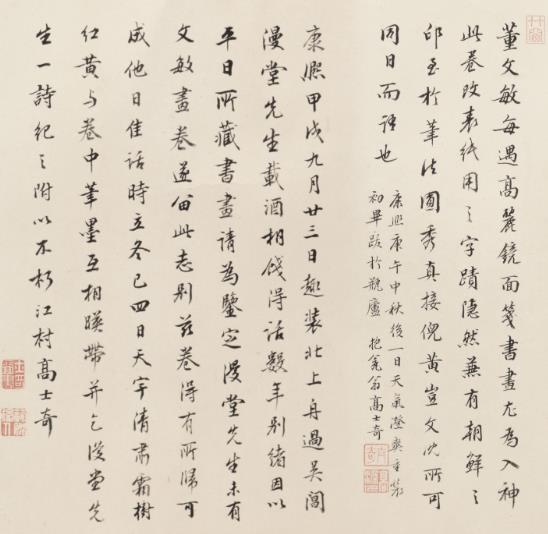 董文敏每遇高麗鏡面箋書畫尤為入神
此卷改表紙用之字蹟隱然兼有朝鮮之
印至於筆法圓秀真接倪黃豈文沈所可
同日而語也
康熙庚午中秋後一日天氣澄爽重裝
初畢跋於瓶廬 抱瓮翁高士奇
康熙甲戌九月廿三日趣裝北上舟過吳閶
漫堂先生載酒相餞得話數年別緒因以
平日所藏書畫請為鑒定漫堂先生未有
文敏畫卷遂留此志別茲卷得有所歸可
成他日佳話時立冬已四日天宇清肅霜樹
紅黃与卷中筆墨互相暎帶并乞漫堂先
生一詩紀之附以不朽江村高士奇